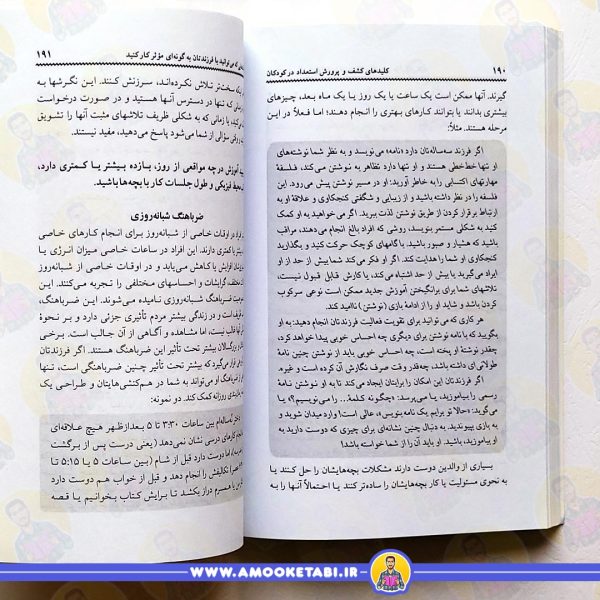 ۱۹۰
کلیدهای کشف و پرورش استعداد در کودکان
گیرند. آنها ممکن است یک ساعت یا یک روز یا یک ماه بعد، چیزهای
بیشتری بدانند یا بتوانند کارهای بهتری را انجام دهند؛ اما فعلاً در این
مرحله هستند. مثلاً:
اگر فرزند سه‌ساله‌تان دارد «نامه» می‌نویسد و به نظر شما نوشته‌های
او تنها خط‌خطی هستند و او تنها دارد تظاهر به نوشتن می‌کند، فلسفهٔ
مهارتهای اکتسابی را به خاطر آورید: او در مسیر نوشتن پیش می‌رود.
فلسفه را در نظر داشته باشید و از زیبایی و شگفتی کنجکاوی و علاقهٔ او به
ارتباط برقرار کردن از طریق نوشتن لذت ببرید. اگر می‌خواهید به او کمک
کنید به شکلی مستمر بنویسد، روشی که افراد بالغ انجام می‌دهند، مراقب
باشید که هشیار و صبور باشید. با گامهای کوچک حرکت کنید و بگذارید
کنجکاوی او شما را هدایت کند. اگر او فکر می‌کند شما بیش از حد از او
ایراد می‌گیرید یا بیش از حد اشتباه می‌کند، یا کارش قابل قبول نیست،
تلاشهای شما برای برانگیختن آموزش جدید ممکن است نوعی سرکوب
کردن باشد و شاید او را از ادامهٔ بازی (نوشتن) ناامید کند.
هر کاری که می‌توانید برای تقویت فعالیت فرزندتان انجام دهید: به او
بگویید که با نامه نوشتن برای دیگری چه احساس خوبی پیدا خواهد کرد،
چقدر نوشتهٔ او پخته است، چه احساس خوبی باید از نوشتن چنین نامهٔ
طولانی‌ای داشته باشد، چه‌قدر وقت صرف نگارش آن کرده است و غیره.
اگر فرزندتان این امکان را برایتان ایجاد می‌کند تا به او نوشتن نامهٔ
رسمی را بیاموزید، مراقب باشید. او با پرسیدن: «چگونه کلمهٔ... را می‌نویسیم؟» یا
می‌گوید: «حالا تو برایم یک نامه بنویس»، عالی است! وارد میدان شوید و
به بازی بپیوندید. به دنبال چنین نشانه‌ای برای چیزی که دوست دارید به
او بیاموزید، باشید. او باید آن را از شما خواسته باشد!
بسیاری از والدین دوست دارند مشکلات بچه‌هایشان را حل کنند یا
به نحوی مسئولیت یا کار بچه‌هایشان را ساده‌تر کنند یا احتمالاً آنها را به
۱۹۱
که می‌توانید با فرزندتان به گونه‌ای مؤثر کار کنید
سخت‌تر تلاش نکرده‌اند، سرزنش کنند. این نگرشها به
تنها در دسترس آنها هستید و در صورت درخواست
یا زمانی که به شکلی ظریف تلاشهای مثبت آنها را تشویق
روش سؤالی از شما شود پاسخ می‌دهید، مفید نیستند.
آموزش در چه مواقعی از روز، بازده بیشتر یا کمتری دارد،
محیط فیزیکی و طول جلسات کار با بچه‌ها باشید.
ضرباهنگ شبانه‌روزی
در اوقات خاصی از شبانه‌روز برای انجام کارهای خاصی
یا کمتری دارند. این افراد در ساعات خاصی میزان انرژی یا
افزایش یا کاهش می‌یابد و در اوقات خاصی از شبانه‌روز
گرایشات و احساسهای مختلفی را تجربه می‌کنند. این
ضرباهنگ شبانه‌روزی نامیده می‌شوند. این ضرباهنگ،
است و در زندگی بیشتر مردم تأثیری جزئی دارد و بر نحوهٔ
غالب نیست، اما مشاهده و آگاهی از آن جالب است. برخی
بزرگسالان بیشتر تحت تأثیر این ضرباهنگ هستند. اگر فرزندتان
قرار می‌گیرد که بیشتر تحت تأثیر چنین ضرباهنگی است، تنها
ضرباهنگ او می‌تواند به شما در هم‌کنشی‌هایتان و طراحی یک
روزانه کمک کند. دو نمونه:
ساله‌تان بین ساعات ۳:۳۰ تا ۵ بعدازظهر هیچ علاقه‌ای
انجام کارهای درسی نشان نمی‌دهد (یعنی درست پس از برگشت
اما دوست دارد قبل از شام (بین ساعات ۵ یا ۵:۱۵ تا
تکالیفش را انجام دهد و قبل از خواب هم دوست دارد
یا هم‌رم دراز بکشد تا برایش کتاب بخوانیم یا قصه
WWW.AMOOKETABI.IR